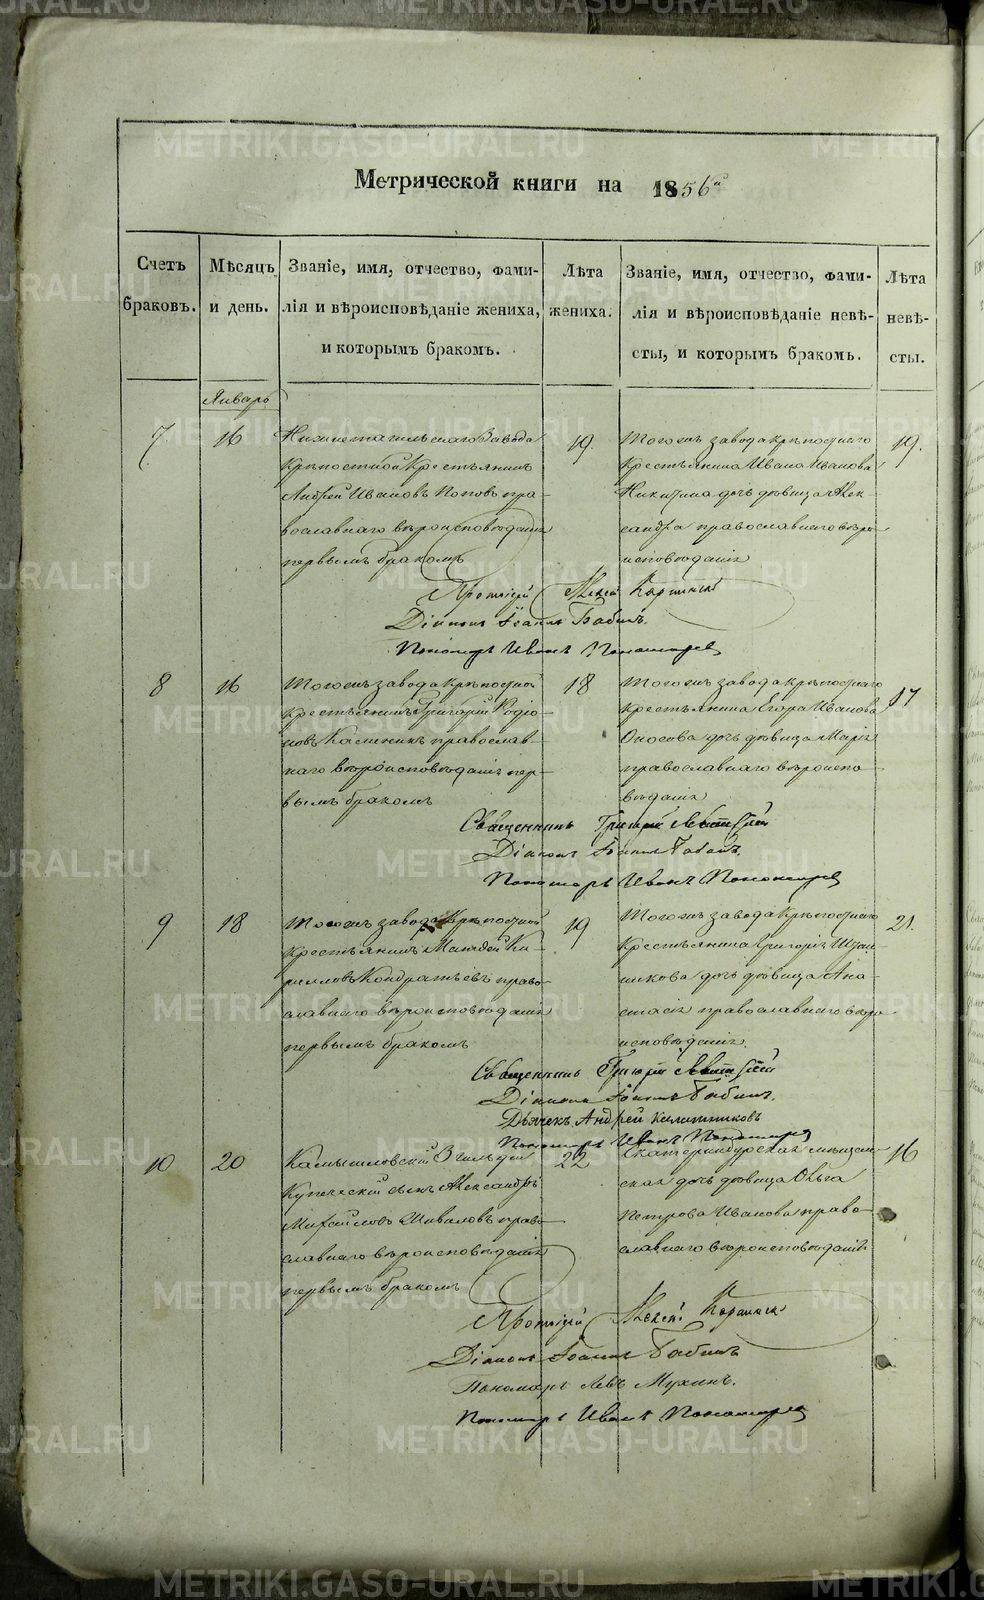 Метрической книги на 1856й
Счетъ браковъ.
Мѣсяцъ и день.
Званіе, имя, отчество, фами-
лія и вѣроисповѣданіе жениха,
и которымъ бракомъ.
Лѣта жениха.
Званіе, имя, отчество, фами-
лія и вѣроисповѣданіе невѣ-
сты, и которымъ бракомъ.
Лѣта невѣ-
сты.
Январь
7
16
Нижнетагильскаго Завода
Крѣпостной Крестьянинъ
Андрей Ивановъ Поповъ пра-
вославнаго вѣроисповѣданія
первымъ бракомъ
19.
Тогожъ завода крѣпостнаго
крестьянина Ивана Иванова
Никитина дочь дѣвица Алек-
сандра православнаго вѣро-
исповѣданія
19.
Протоіерей Алексей
Діаконъ Іоаннъ Бабинъ.
Пономарь Иванъ Пономаревъ
8
16
Тогожъ завода Крѣпостной
крестьянинъ Григорій Родіо-
новъ Калининъ православ-
наго вѣроисповѣданія пер-
вымъ бракомъ
18
Тогожъ завода крѣпостнаго
крестьянина Егора Иванова
дочь дѣвица Марія
православнаго вѣроиспо-
вѣданія
17
Священникъ Григорій
Діаконъ Іоаннъ Бабинъ.
Пономарь Иванъ Пономаревъ
9
18
Тогожъ завода Крѣпостной
крестьянинъ Матвей Ки-
рилловъ Кондратьевъ право-
славнаго вѣроисповѣданія
первымъ бракомъ
19
Тогожъ завода Крѣпостнаго
крестьянина Григорія
дочь дѣвица Ана-
стасія православнаго вѣро-
исповѣданія.
21.
Священникъ Григорій
Діаконъ Іоаннъ Бабинъ.
Дьячекъ Андрей
Пономарь Иванъ Пономаревъ
10
20
Камышловскій 3 гильдіи
Купеческій сынъ Александръ
Михайловъ право-
славнаго вѣроисповѣданія
первымъ бракомъ
22
Екатеринбурская мѣщан-
ская дочь дѣвица Ольга
Петрова Иванова право-
славнаго вѣроисповѣданія
16
Протоіерей Алексей
Діаконъ Іоаннъ Бабинъ
Пономарь Левъ Мухинъ.
Пономарь Иванъ Пономаревъ
METRIKI.GASO-URAL.RU